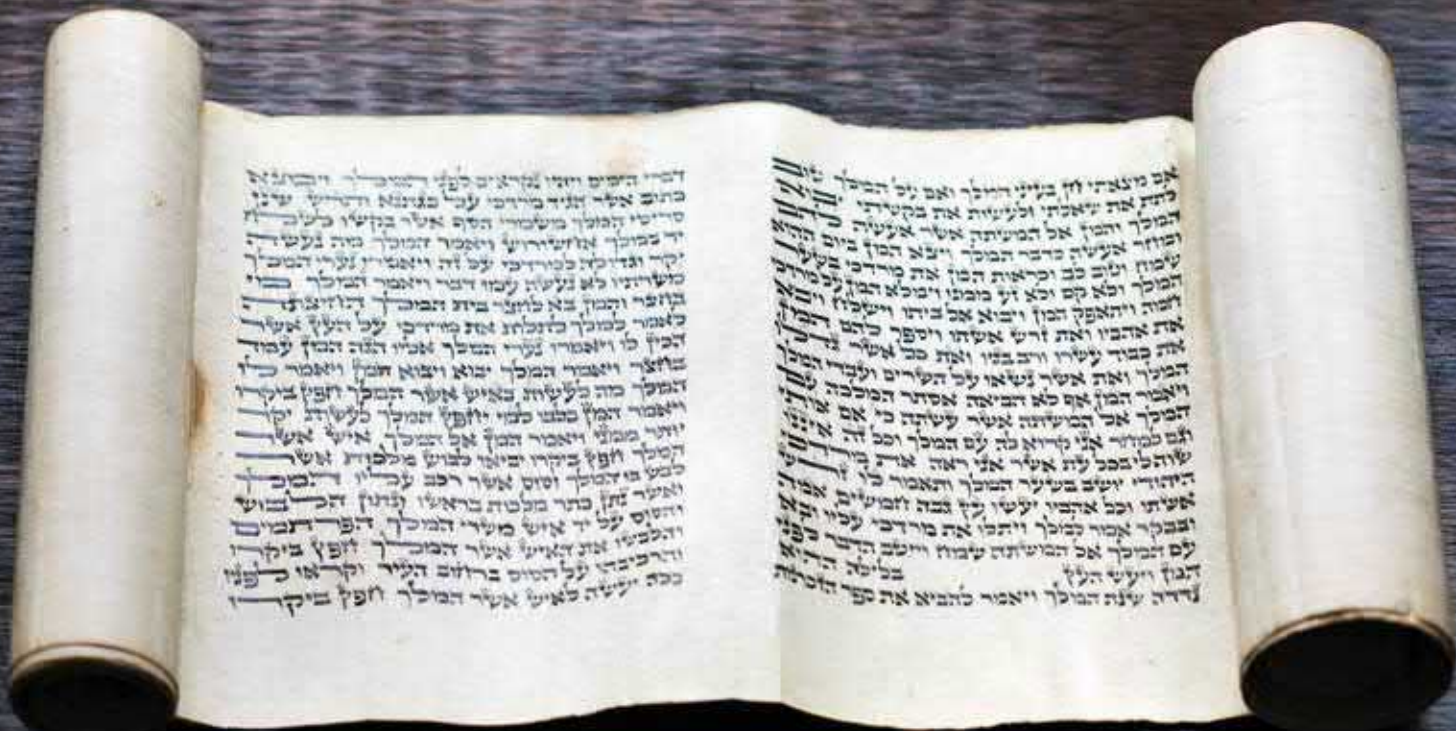 אם מצאתי חן בעיני המלך ואם על המלך טוב
לתת את שאלתי ולעשות את בקשתי יבוא
המלך והמן אל המשתה אשר אעשה להם
ומחר אעשה כדבר המלך ויצא המן ביום ההוא
שמח וטוב לב וכראות המן את מרדכי בשער
המלך ולא קם ולא זע ממנו וימלא המן על מרדכי
חמה ויתאפק המן ויבוא אל ביתו וישלח ויבא
את אהביו ואת זרש אשתו ויספר להם המן
את כבוד עשרו ורב בניו ואת כל אשר גדלו
המלך ואת אשר נשאו על השרים ועבדי המלך
ויאמר המן אף לא הביאה אסתר המלכה עם
המלך אל המשתה אשר עשתה כי אם אותי
וגם למחר אני קרוא לה עם המלך וכל זה איננו
שוה לי בכל עת אשר אני ראה את מרדכי
היהודי יושב בשער המלך ותאמר לו זרש
אשתו וכל אהביו יעשו עץ גבה חמשים אמה
ובבקר אמר למלך ויתלו את מרדכי עליו ובא
עם המלך אל המשתה שמח וייטב הדבר לפני
המן ויעש העץ בלילה ההוא
נדדה שנת המלך ויאמר להביא את ספר הזכרנות
דברי הימים ויהיו נקראים לפני המלך וימצא
כתוב אשר הגיד מרדכי על בגתנא ותרש שני
סריסי המלך משמרי הסף אשר בקשו לשלח
יד במלך אחשורוש ויאמר המלך מה נעשה
יקר וגדולה למרדכי על זה ויאמרו נערי המלך
משרתיו לא נעשה עמו דבר ויאמר המלך מי
בחצר והמן בא לחצר בית המלך החיצונה
לאמר למלך לתלות את מרדכי על העץ אשר
הכין לו ויאמרו נערי המלך אליו הנה המן עמד
בחצר ויאמר המלך יבוא ויבוא המן ויאמר לו
המלך מה לעשות באיש אשר המלך חפץ ביקרו
ויאמר המן בלבו למי יחפץ המלך לעשות יקר
יותר ממני ויאמר המן אל המלך איש אשר
המלך חפץ ביקרו יביאו לבוש מלכות אשר
לבש בו המלך וסוס אשר רכב עליו המלך
ואשר נתן כתר מלכות בראשו ונתון הלבוש
והסוס על יד איש משרי המלך הפרתמים
והלבשו את האיש אשר המלך חפץ ביקרו
והרכיבהו על הסוס ברחוב העיר וקראו לפניו
ככה יעשה לאיש אשר המלך חפץ ביקרו